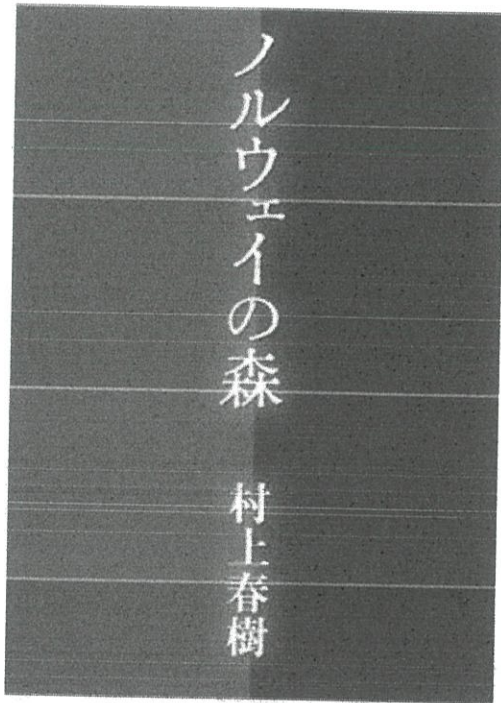 ノルウェイの森 村上春樹